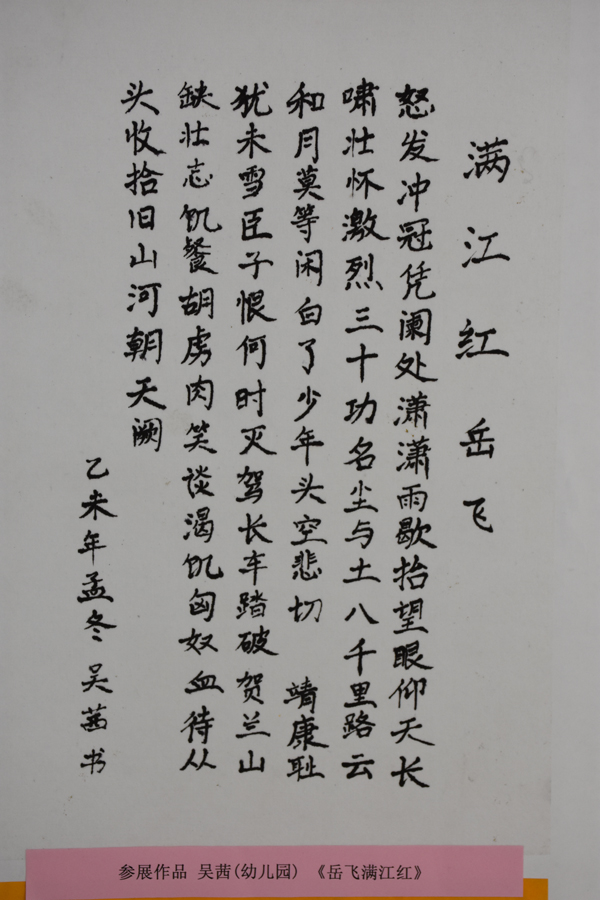 满江红 岳飞
怒发冲冠凭阑处潇潇雨歇抬望眼仰天长
啸壮怀激烈三十功名尘与土八千里路云
和月莫等闲白了少年头空悲切 靖康耻
犹未雪臣子恨何时灭驾长车踏破贺兰山
缺壮志饥餐胡虏肉笑谈渴饥匈奴血待从
头收拾旧山河朝天阙
乙未年孟冬 吴茜书
参展作品 吴茜(幼儿园) 《岳飞满江红》